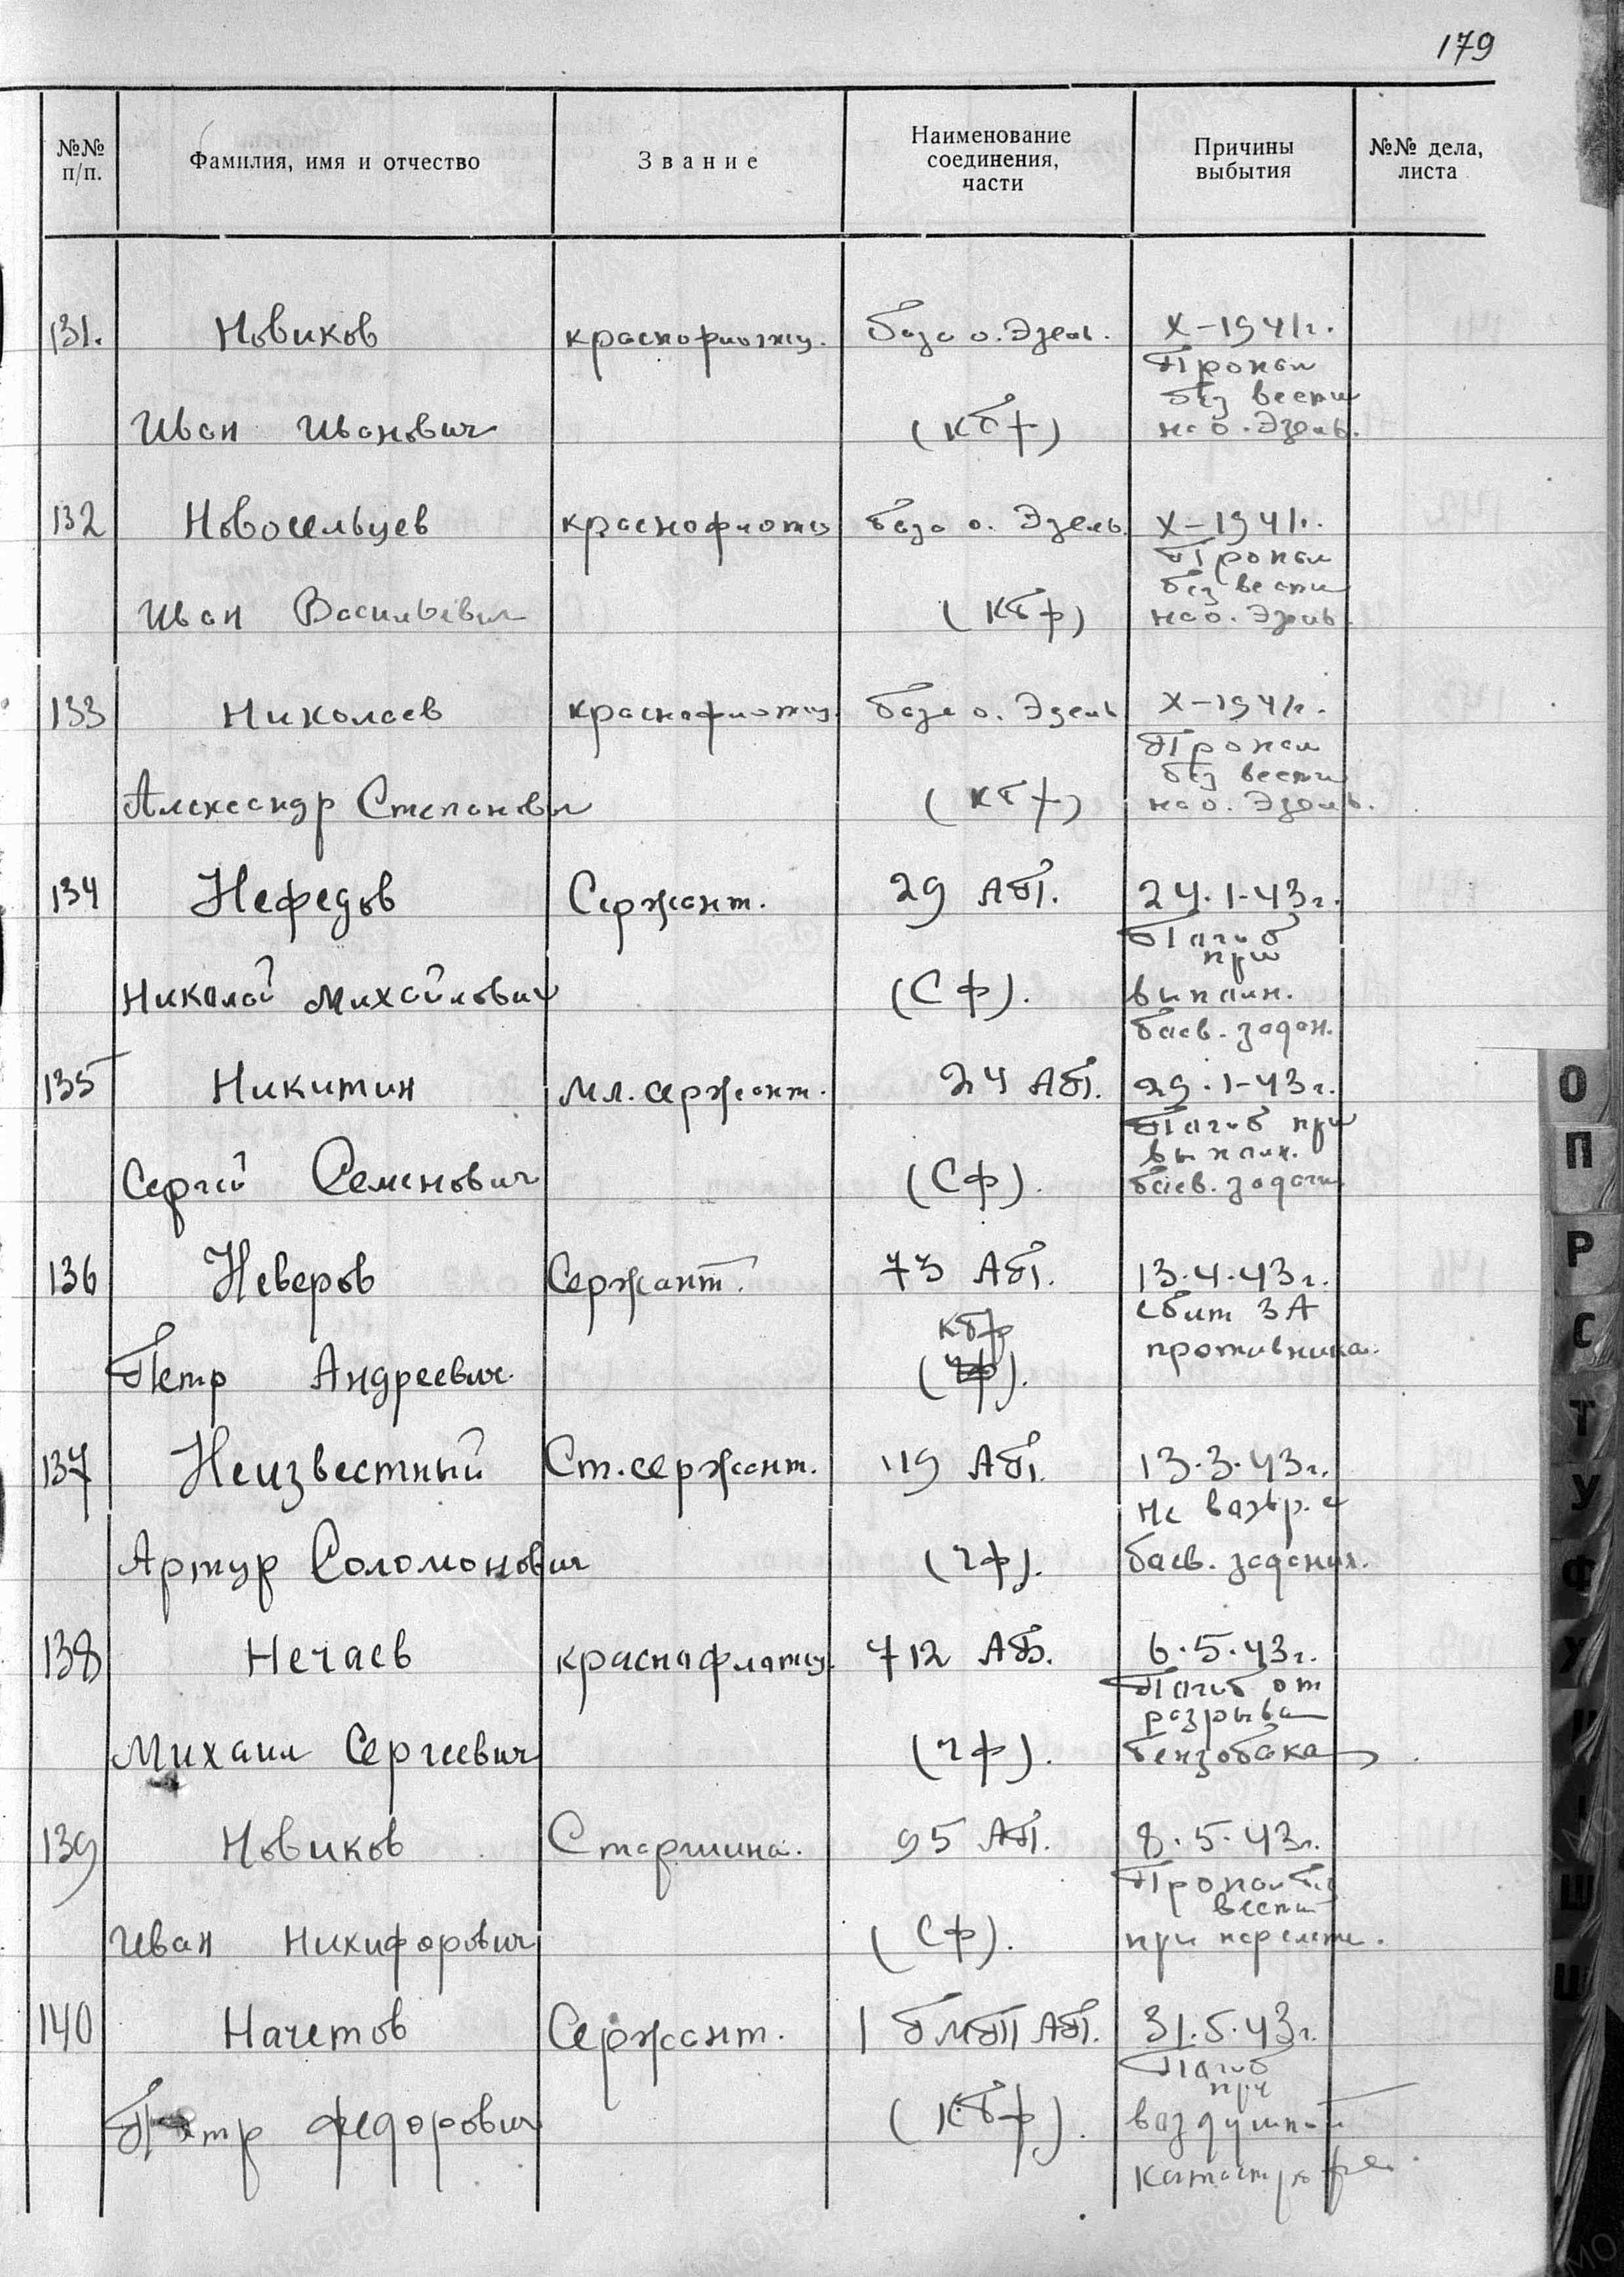 179
№№ п/п. Фамилия, имя и отчество Звание Наименование соединения, части Причины выбытия №№ дела, листа
131. Новиков краснофлотец. база о. Эзель. X-1941г.
Пропал
без вести
Иван Иванович (КБФ) на о. Эзель.
132 Новосельцев краснофлотец база о. Эзель. X-1941г.
Пропал
без вести
Иван Васильевич (КБФ) на о. Эзель
133 Николаев краснофлотец база о. Эзель X-1941г.
Пропал
без вести
Александр Степанович (КБФ) на о. Эзель.
134 Нефедов Сержант. 29 АП. 24.1-43г.
Погиб
при
Николай Михайлович (СФ). выполн.
боев. задан.
135 Никитин Мл. сержант. 24 АП. 29.1-43г.
Погиб при
выполн.
Сергей Семенович (СФ). боев. задач
136 Неверов Сержант. 73 АП. 13.4.43г.
сбит ЗА
КБФ
противника.
Петр Андреевич. (ЧФ).
137 Неизвестный Ст. сержант. 119 АП. 13.3.43г.
Не возвр. с
Артур Соломонович (ЧФ). боев. задания.
138 Нечаев краснофлотец. 712 АБ. 6.5.43г.
Погиб от
разрыва
Михаил Сергеевич (ЧФ). бензобака
139 Новиков Старшина. 95 АП. 8.5.43г.
Пропал без
вести
Иван Никифорович (СФ). при перелете.
140 Начетов Сержант. 1 АП. 31.5.43г.
Погиб
при
Петр Федорович (КБФ). воздушной
катастрофе.
О
П
Р
С
Т
У
Ф
Х
Ш